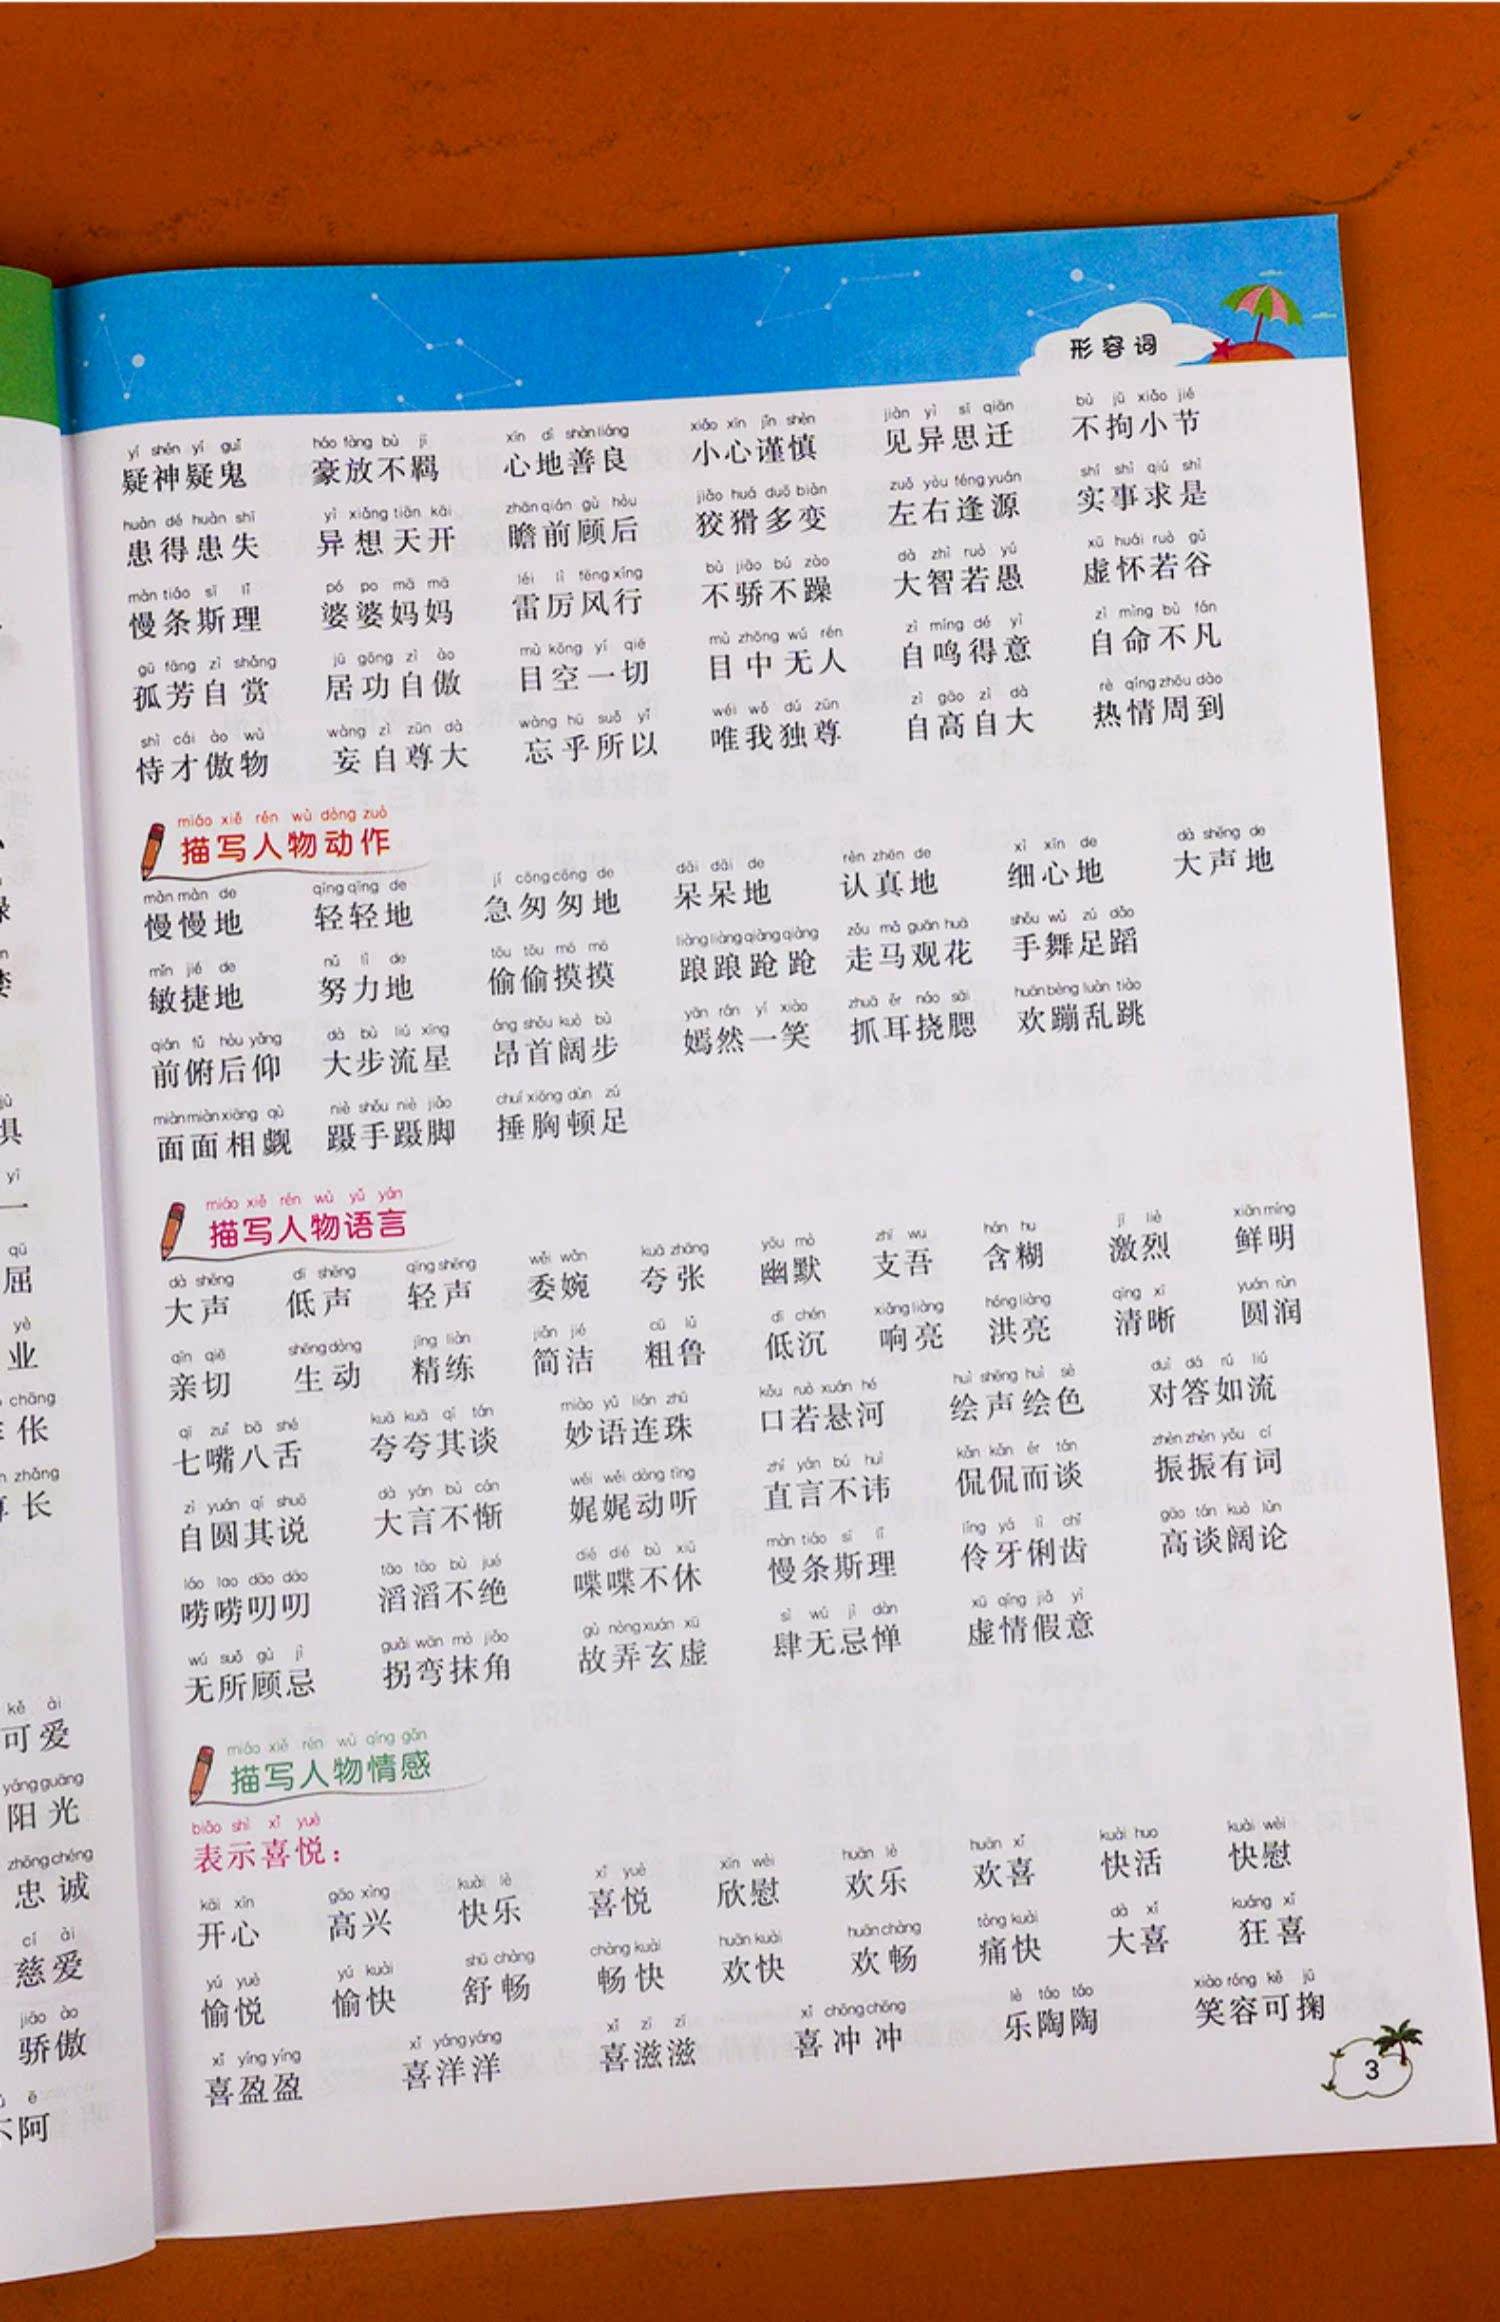 形容词
yí shén yí guǐ háo fàng bù jī xīn dì shàn liáng xiǎo xīn jǐn shèn jiàn yì sī qiān bù jū xiǎo jié
疑神疑鬼 豪放不羁 心地善良 小心谨慎 见异思迁 不拘小节
huàn dé huàn shī yì xiǎng tiān kāi zhān qián gù hòu jiǎo huá duō biàn zuǒ yòu féng yuán shí shì qiú shì
患得患失 异想天开 瞻前顾后 狡猾多变 左右逢源 实事求是
màn tiáo sī lǐ pó po mā mā léi lì fēng xíng bù jiāo bú zào dà zhì ruò yú xū huái ruò gǔ
慢条斯理 婆婆妈妈 雷厉风行 不骄不躁 大智若愚 虚怀若谷
gū fāng zì shǎng jū gōng zì ào mù kōng yí qiè mù zhōng wú rén zì míng dé yì zì mìng bù fán
孤芳自赏 居功自傲 目空一切 目中无人 自鸣得意 自命不凡
shì cái ào wù wàng zì zūn dà wàng hū suǒ yǐ wéi wǒ dú zūn zì gāo zì dà rè qíng zhōu dào
恃才傲物 妄自尊大 忘乎所以 唯我独尊 自高自大 热情周到
miáo xiě rén wù dòng zuò
描写人物动作
màn màn de qīng qīng de jí cōng cōng de dāi dāi de rèn zhēn de xì xīn de dà shēng de
慢慢地 轻轻地 急匆匆地 呆呆地 认真地 细心地 大声地
mǐn jié de nǔ lì de tōu tōu mō mō liàng liàng qiàng qiàng zǒu mǎ guān huā shǒu wǔ zú dǎo
敏捷地 努力地 偷偷摸摸 踉踉跄跄 走马观花 手舞足蹈
qián fǔ hòu yǎng dà bù liú xīng áng shǒu kuò bù yān rán yí xiào zhuā ěr náo sāi huān bèng luàn tiào
前俯后仰 大步流星 昂首阔步 嫣然一笑 抓耳挠腮 欢蹦乱跳
miàn miàn xiāng qù niè shǒu niè jiǎo chuí xiōng dùn zú
面面相觑 蹑手蹑脚 捶胸顿足
miáo xiě rén wù yǔ yán
描写人物语言
dà shēng dī shēng qīng shēng wěi wǎn kuā zhāng yōu mò zhī wu hán hu jī liè xiān míng
大声 低声 轻声 委婉 夸张 幽默 支吾 含糊 激烈 鲜明
qīn qiè shēng dòng jīng liàn jiǎn jié cū lǔ dī chén xiǎng liàng hóng liàng qīng xī yuán rùn
亲切 生动 精练 简洁 粗鲁 低沉 响亮 洪亮 清晰 圆润
qī zuǐ bā shé kuā kuā qí tán miào yǔ lián zhū kǒu ruò xuán hé huì shēng huì sè duì dá rú liú
七嘴八舌 夸夸其谈 妙语连珠 口若悬河 绘声绘色 对答如流
zì yuán qí shuō dà yán bù cán wěi wěi dòng tīng zhí yán bú huì kǎn kǎn ér tán zhèn zhèn yǒu cí
自圆其说 大言不惭 娓娓动听 直言不讳 侃侃而谈 振振有词
láo lao dāo dāo tāo tāo bù jué dié dié bù xiū màn tiáo sī lǐ líng yá lì chǐ gāo tán kuò lùn
唠唠叨叨 滔滔不绝 喋喋不休 慢条斯理 伶牙俐齿 高谈阔论
wú suǒ gù jì guǎi wān mò jiǎo gù nòng xuán xū sì wú jì dàn xū qíng jiǎ yì
无所顾忌 拐弯抹角 故弄玄虚 肆无忌惮 虚情假意
miáo xiě rén wù qíng gǎn
描写人物情感
biǎo shì xǐ yuè
表示喜悦：
kāi xīn gāo xìng kuài lè xǐ yuè xīn wèi huān lè huān xǐ kuài huo kuài wèi
开心 高兴 快乐 喜悦 欣慰 欢乐 欢喜 快活 快慰
yú yuè yú kuài shū chàng chàng kuài huān kuài huān chàng tòng kuài dà xǐ kuáng xǐ
愉悦 愉快 舒畅 畅快 欢快 欢畅 痛快 大喜 狂喜
xǐ yíng yíng xǐ yáng yáng xǐ zī zī xǐ chōng chōng lè táo táo xiào róng kě jū
喜盈盈 喜洋洋 喜滋滋 喜冲冲 乐陶陶 笑容可掬
3
yī
一
qū
屈
yè
业
chāng
伥
zhǎng
长
kě ài
可爱
yáng guāng
阳光
zhōng chéng
忠诚
cí ài
慈爱
jiāo ào
骄傲
ē
不阿